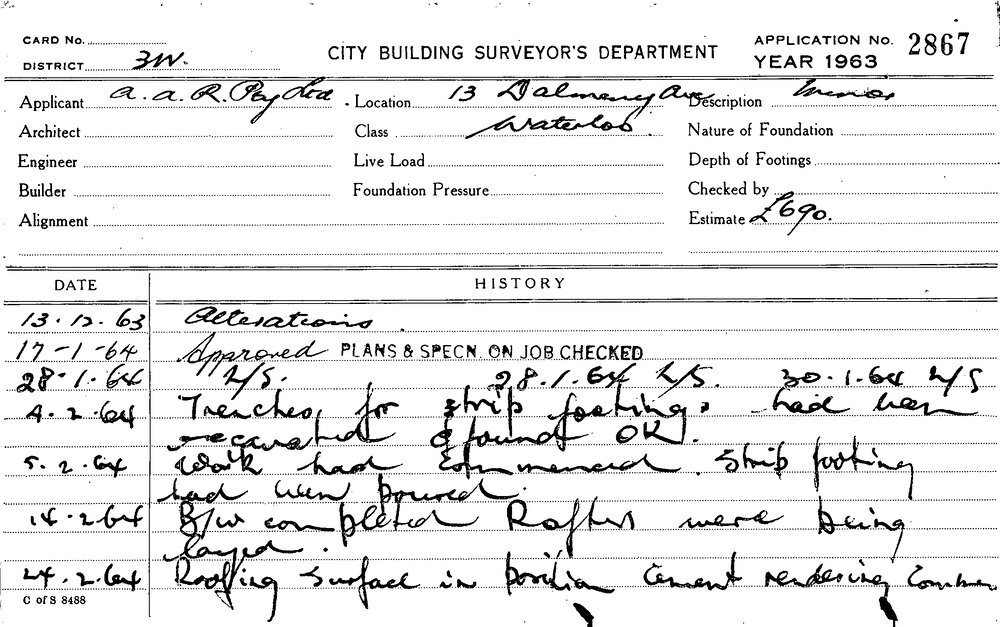 CARD No.
CITY BUILDING SURVEYOR'S DEPARTMENT
APPLICATION No. 2867
DISTRICT 3W.
YEAR 1963
Applicant A. A. R. Pty Ltd. Location 13 Dalmeny Ave Description Minor
Architect Class Waterloo Nature of Foundation
Engineer Live Load Depth of Footings
Builder Foundation Pressure Checked by
Alignment Estimate £690.
DATE HISTORY
13.12.63 Alterations
17-1-64 Approved PLANS & SPECN. ON JOB CHECKED
28.1.64 L/S. 28.1.64 L/S. 30.1.64 L/S
4.2.64 Trenches for strip footings had been
excavated & found OK.
5.2.64 Work had commenced. Strip footing
had been poured.
14.2.64 B/W completed Rafters were being
layed.
24.2.64 Roofing surface in position Cement rendering
C of S 8488